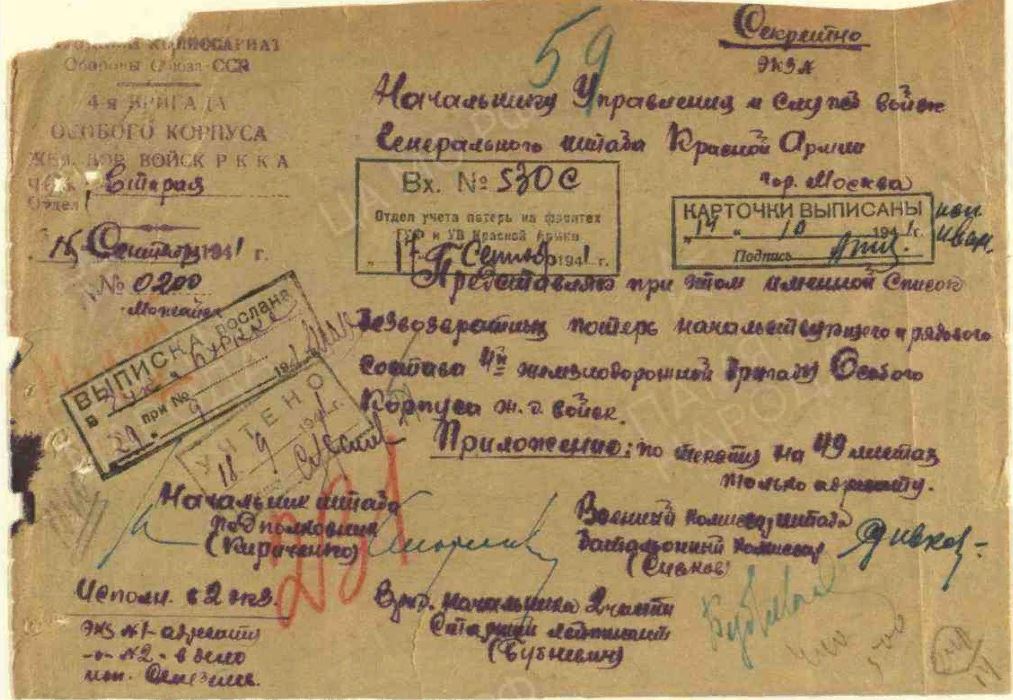 КОМИССАРИАТ
Обороны Союза ССР
4-я БРИГАДА
ОСОБОГО КОРПУСА
ЖЕЛ. ДОР. ВОЙСК Р К К А
Вторая
Отдел
15 Сентября 1941 г.
№ 0200
Можайск
59
Секретно
экз
Начальнику Управления и службы войск
Генерального штаба Красной Армии
гор. Москва
Вх. № 530с
Отдел учета потерь на фронтах
ГУФ и УВ Красной Армии
„17" Сентябр 1941 г.
КАРТОЧКИ ВЫПИСАНЫ
„14" 10 1941 г.
Подпись
Представляю при этом именной список
безвозвратных потерь начальствующего и рядового
состава 4й железнодорожной бригады Особого
Корпуса ж. д. войск.
Приложение: по тексту на 49 листах
только адресату.
ВЫПИСКА послана
в
при № 194
29. 9
УЧТЕНО
18 9 1941 г.
Начальник штаба
подполковник
(Кириченко)
Военный комиссар штаба
батальонный комиссар
(Сивков)
Сивков
281
Исполн. в 2 экз.
экз №1 - адресату
-"- №2 - в дело
Врид. начальника 2 части
Старший лейтенант
(Бубневич)